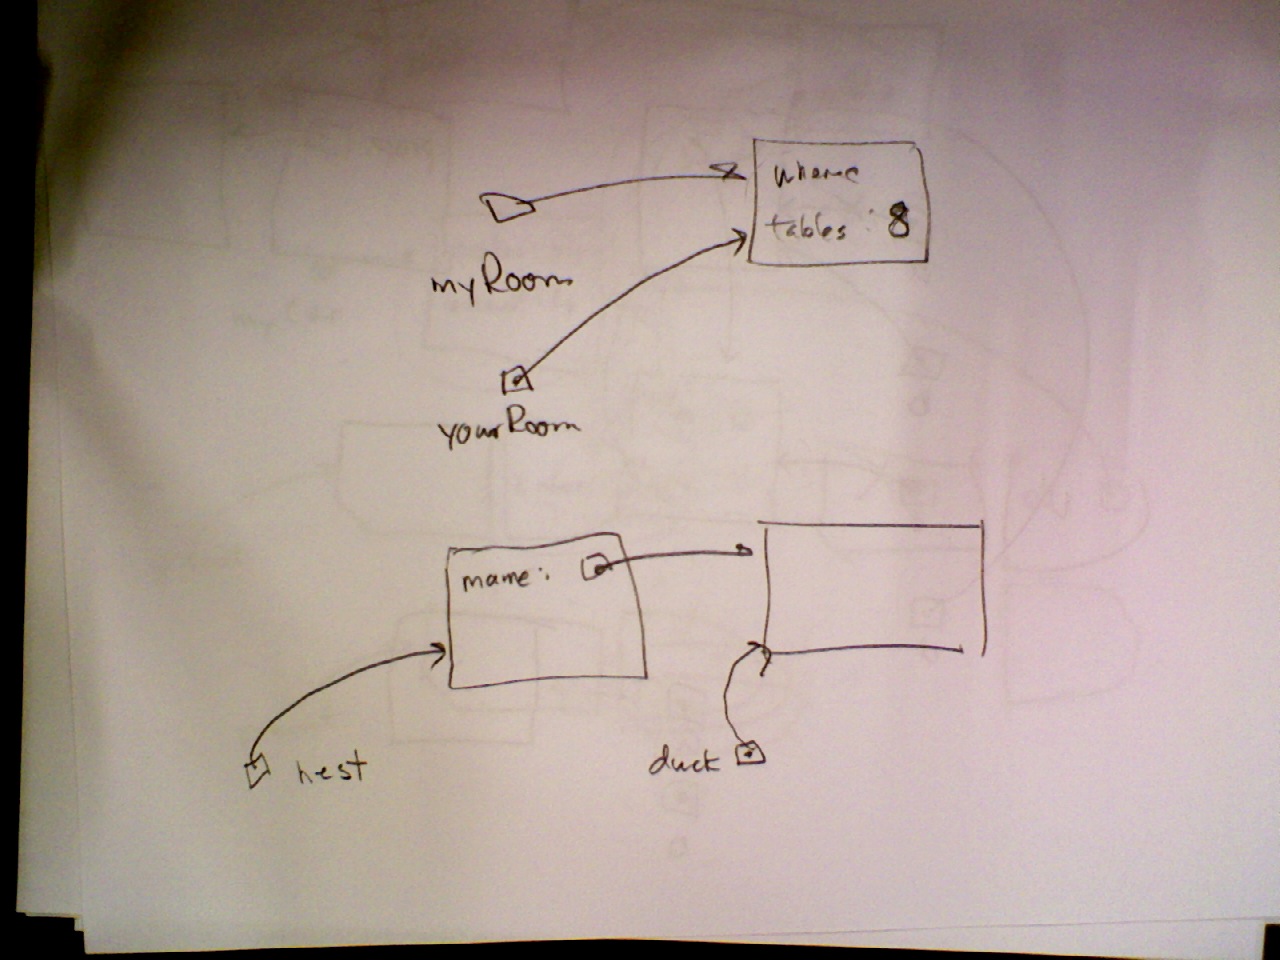 tables : 8
myRoom
yourRoom
name:
nest
duck